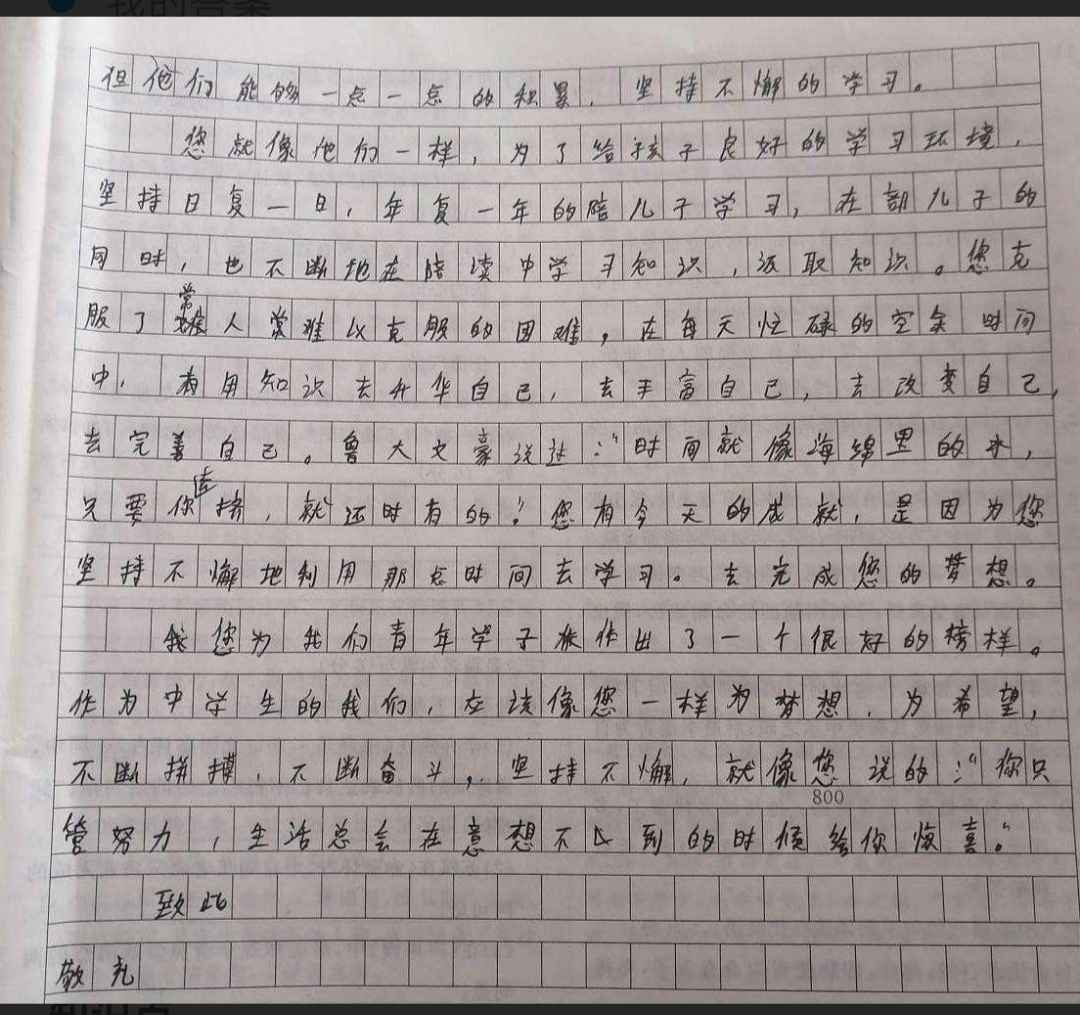 我的答案
但他们能够一点一点的积累，坚持不懈的学习。
您就像他们一样，为了给孩子良好的学习环境，
坚持日复一日，年复一年的陪儿子学习，在部儿子的
同时，也不断地在陪读中学习知识，汲取知识。您克
服了常人常难以克服的困难，在每天忙碌的空余时间
中，有用知识去升华自己，去丰富自己，去改变自己，
去完善自己。鲁大文豪说过：“时间就像海绵里的水，
只要你去挤，就还时有的。”您有今天的成就，是因为您
坚持不懈地利用那点时间去学习。去完成您的梦想。
您为我们青年学子做作出了一个很好的榜样。
作为中学生的我们，应该像您一样为梦想，为希望，
不断拼搏，不断奋斗，坚持不懈，就像您说的：“你只
800
管努力，生活总会在意想不到的时候给你惊喜。”
致此
敬礼